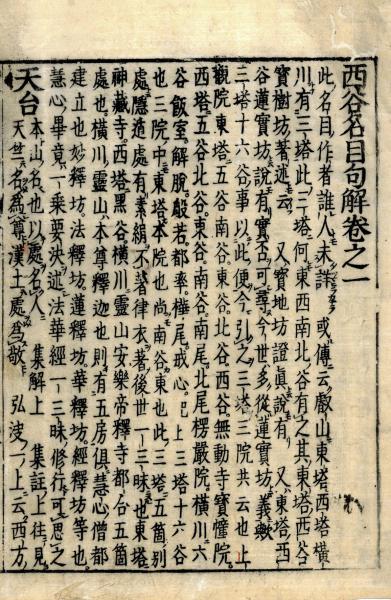 西谷名目句解卷之一
此名目作者誰人未詳 或傳云叡山東塔西塔橫
川有三塔此三塔何東西南北谷有之其東塔西谷
寶樹坊著述云 又寶地坊證眞說有 又東塔西
谷蓮實坊說有實否可尋今世多從蓮實坊義歟
三塔十六谷事以此便今引之三塔三院共云也上
觀院東塔五谷南谷東谷北谷西谷無動寺寶幢院
西塔五谷北谷東谷南谷南尾北尾楞嚴院橫川六
谷飯室解脫般若都率樺尾戒心已上三塔十六谷
也三院中東塔本院也尚南谷東也此三塔五箇別
處隱遁處有素絹不著律衣著後世一三昧也東塔
神藏寺西塔黑谷橫川靈山安樂帝釋寺都合五箇
處也橫川靈山本尊釋迦也則有五房俱慧心僧都
建立也妙釋坊法釋坊蓮釋坊經釋坊等也
慧心畢竟一乘要決述法華經一三昧修行可思之
天台 本山名也以處名人 集解上 集註上往見
天竺名爲尊漢土處爲敬 弘決一上云西方